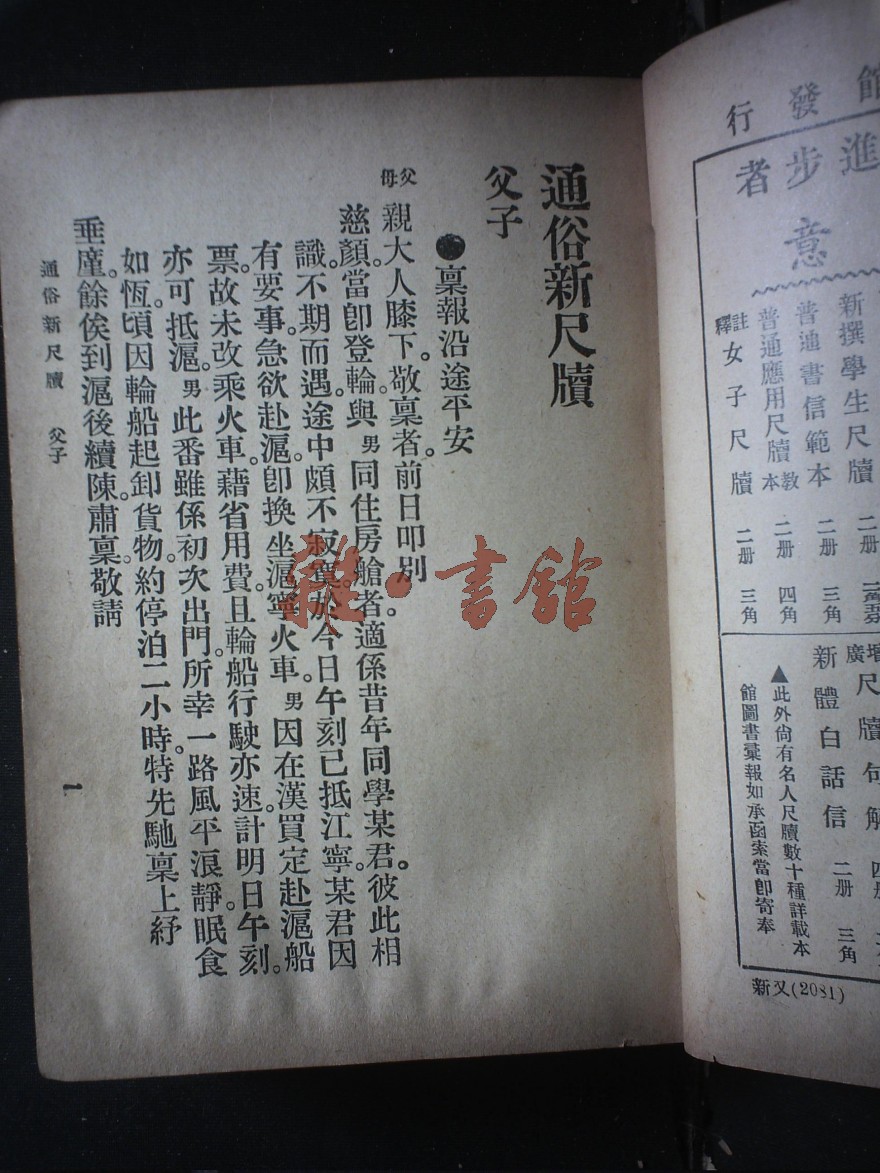 館發行
進步者
意
新撰學生尺牘 二册
普通書信範本 二册 三角
普通應用尺牘教本 二册 四角
註釋女子尺牘 二册 三角
增廣尺牘句解 四册
新體白話信 二册 三角
▲此外尚有名人尺牘數十種詳載本
館圖書彙報如承函索當卽寄奉
新又(2081)
通俗新尺牘
父子
●稟報沿途平安
父母親大人膝下。敬稟者。前日叩別
慈顏。當卽登輪。與男同住房艙者。適係昔年同學某君。彼此相
識。不期而遇。途中頗不寂寞。於今日午刻已抵江寧。某君因
有要事。急欲赴滬。卽換坐滬寧火車。男因在漢買定赴滬船
票。故未改乘火車。藉省用費。且輪船行駛亦速。計明日午刻。
亦可抵滬。男此番雖係初次出門。所幸一路風平浪靜。眠食
如恆。頃因輪船起卸貨物。約停泊二小時。特先馳稟。上紓
垂廑。餘俟到滬後續陳。肅稟敬請
通俗新尺牘 父子
一
雜·書館